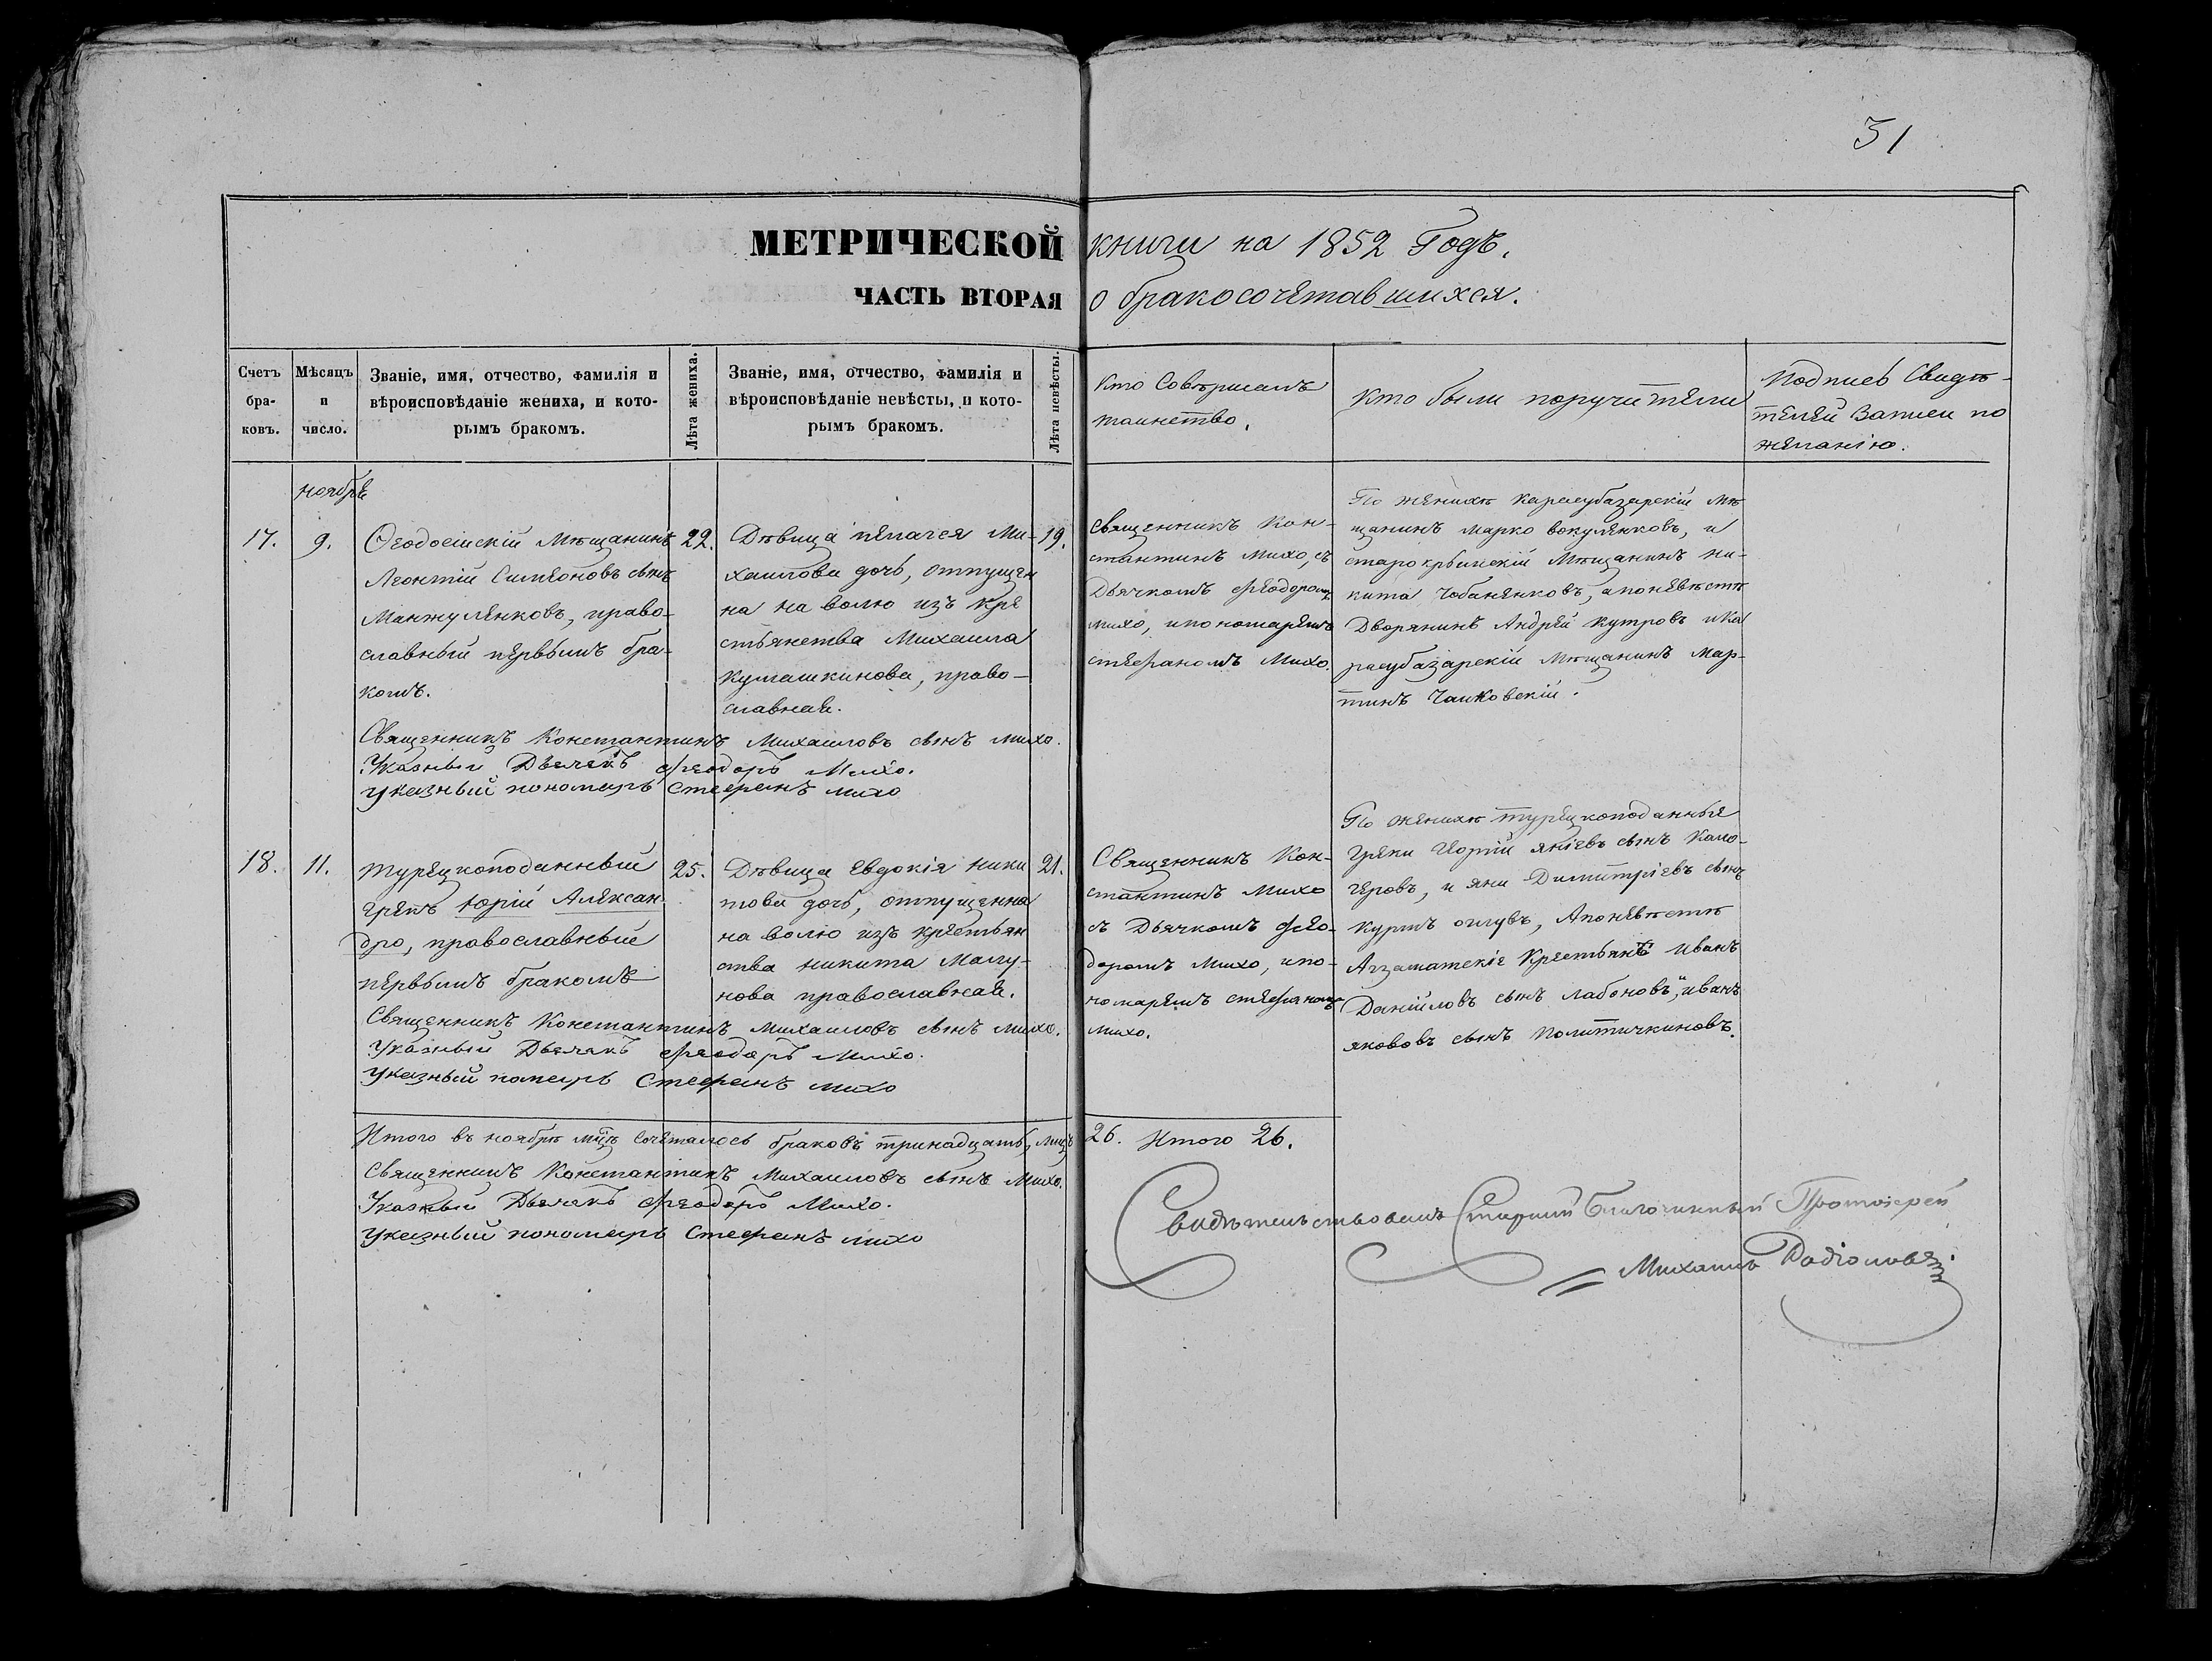 31
МЕТРИЧЕСКОЙ книги на 1852 Годъ.
ЧАСТЬ ВТОРАЯ о бракосочетавшихся.
Счетъ
бра-
ковъ.
Мѣсяцъ
и
число.
Званіе, имя, отчество, фамилія и
вѣроисповѣданіе жениха, и кото-
рымъ бракомъ.
Лѣта жениха.
Званіе, имя, отчество, фамилія и
вѣроисповѣданіе невѣсты, и кото-
рымъ бракомъ.
Лѣта невѣсты.
Кто Совершалъ
таинство.
Кто были поручители
Подпись Свидѣ-
телей Записи по
желанію.
ноября
17.
9.
Ѳеодосійскій Мѣщанинъ
Леонтій Симеоновъ сынъ
Манжуленковъ, право-
славный первымъ бра-
комъ.
22.
Дѣвица пелагея Ми-
хаилова дочь, отпущен
на на волю изъ кре
стьянства Михаила
Кумашкинова, право-
славная.
19.
Священникъ Кон-
стантинъ Михо, съ
Дьячкомъ Феодоромъ
Михо, и пономаремъ
стефаномъ Михо.
По женихѣ Карасубазарскій Мѣ
щанинъ Марко вакуленковъ, и
старокрымскій Мѣщанинъ Ни-
кита Чобаненковъ, а по невѣстѣ
Дворянинъ Андрей Кутровъ и Ка
расубазарскій Мѣщанинъ Мар-
тинъ Чайковскій.
Священникъ Константинъ Михаиловъ сынъ Михо.
Указный Дьячекъ Феодоръ Михо.
Указный пономарь Стефанъ Михо
18.
11.
Турецкоподанный
грекъ Юрій Алексан
дро, православный
первымъ бракомъ
25.
Дѣвица Евдокія Ники
това дочь, отпущенна
на волю изъ крестьян
ства никита Малу-
нова православная.
21.
Священникъ Кон-
стантинъ Михо
съ Дьячкомъ Фео-
доромъ Михо, и по-
номаремъ стефаномъ
Михо.
По женихѣ турецкоподанные
Греки Георгій яніевъ сынъ Кало-
геровъ, и яни Димитріевъ сынъ
Куртъ оглувъ, А по невѣстѣ
Аргаматскіе Крестьянѣ Иванъ
Даніиловъ сынъ Лабоновъ, и иванъ
яковъ сынъ Политичкиновъ.
Священникъ Константинъ Михаиловъ сынъ Михо.
Указный Дьячекъ Феодоръ Михо.
Указный понмарь Стефанъ Михо
Итого въ ноябрѣ мцѣ сочеталось браковъ тринадцать, лицъ 26. Итого 26.
Священникъ Константинъ Михаиловъ сынъ Михо.
Указный Дьячекъ Феодоръ Михо.
Указный пономарь Стефанъ Михо
Свидѣтельствовалъ Старшій Благочинный Протоіерей
Михаилъ Родіоновъ